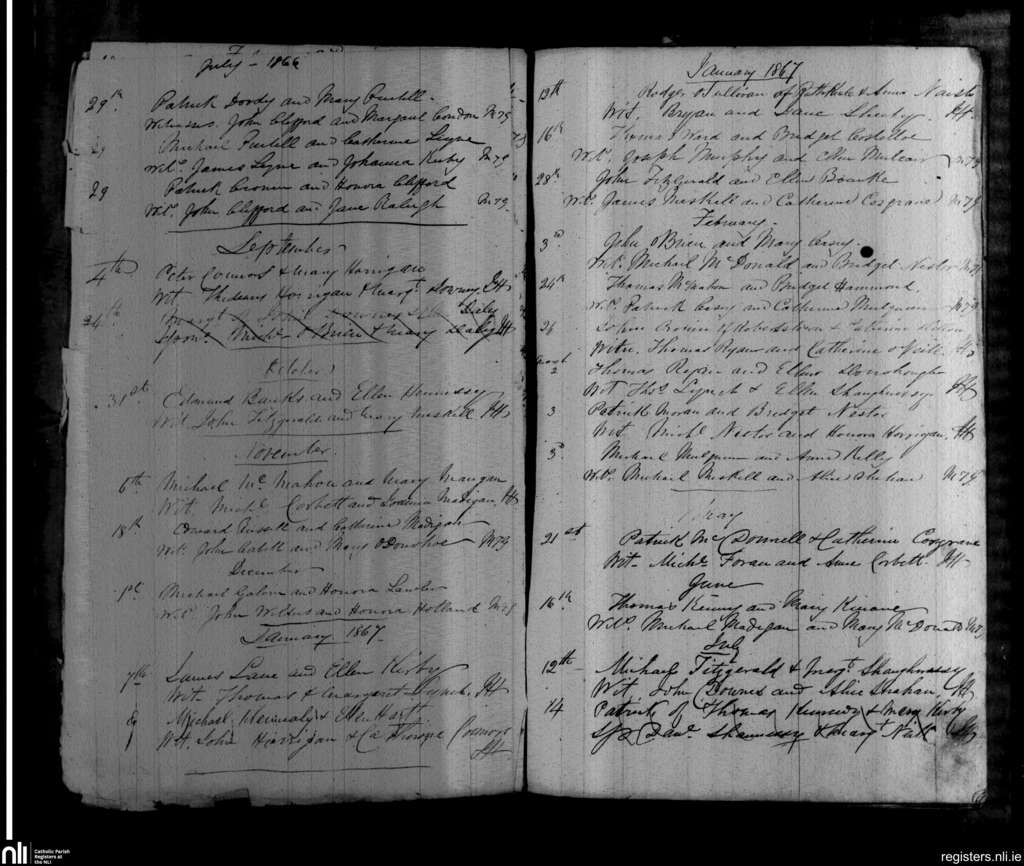 July - 1866
29th Patrick Doody and Mary Purtill
Witnesses. John Clifford and Margaret Condon
29 Michael Purtill and Catherine Lyne
Wit. James Lyne and Johanna Kirby
29 Patrick Cronin and Honora Clifford
Wit. John Clifford and Jane Raleigh
September
4th Peter Connors & Mary Horrigan
Wit Thadeus Horrigan & Margt Downey
24th
Michl O Brien & Mary
October
31st Edmund Banks and Ellen Hennessy
Wit John Fitzgerald and Mary Meskill
November
6th Michael Mc Mahon and Mary Mangan
Wit. Michl Corbett and Madigan
18th Edward Russell and Catherine Madigan
Wit. John Cahill and Mary O'Donohoe
December
1st Michael Galvin and Honora Lawlor
Wit. John and Honora Holland
January 1867
7th James Lane and Ellen Kirby
Wit. Thomas & Margaret Lynch
8 Michael & Ellen Hartt
Wit. John Horrigan & Catherine Connors
January 1867
13th Rodger O'Sullivan of Rathkeale & Anna
Wit. Bryan and Jane Sheehy
16th Thomas Ward and Bridget Costelloe
Wit. Joseph Murphy and Ellen
28th John Fitzgerald and Ellen Bourke
Wit. James Meskell and Catherine Cosgrave
February
3rd John O'Brien and Mary Casey
Wit. Michael Mc Donald and Bridget Nestor
24th Thomas McMahon and Bridget Hammond
Wit. Patrick Casey and Catherine Mulqueen
26
Witn. Thomas Ryan and Catherine O'Neill
March
2 Thomas Ryan and Ellen Donohoughe
Wit Thos Lynch & Ellen Shaughnessy
3 Patrick Moran and Bridget Nestor
Wit. Michl Nestor and Honora Horrigan
5 Michael Mulqueen and Anne Kelly
Wit. Michael Meskell and Alice Sheehan
May
21st Patrick McDonnell & Catherine Cosgrave
Wit- Michl Foran and Anne Corbett
June
16th Thomas Kinny and Mary Kinane
Wit. Michael Madigan and Mary McDonald
July
12th Michael Fitzgerald & Margt Shaughnessy
Wit John Downes and Alice Sheehan
14 Patrick of Thomas Kennedy & Mary Kirby
Sps Danl Shaunessy & Mary
nli
Catholic Parish
Registers at
the NLI
registers.nli.ie